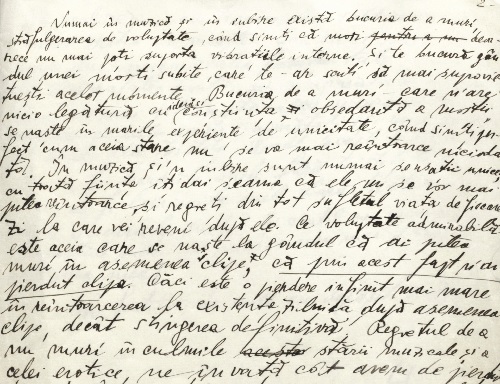 2
Numai în muzică și în iubire există bucuria de a muri,
străfulgerarea de voluptate, când simți că mori pentru a nu deoa-
rece nu mai poți suporta vibrațiile interne. Și te bucură gân-
dul unei morți subite, care te-ar scuti să mai supravie-
țuești acelor momente. Bucuria de a muri, care n'are
nicio legătură cu ideia și conștiința obsedantă a morții,
se naște în marile experiențe de unicitate, când simți per-
fect cum acea stare nu se va mai reîntoarce nicioda-
tă. În muzică și'n iubire sunt numai senzații unice;
cu toată ființa îți dai seama că ele nu se vor mai
putea reîntoarce, și regreți din tot sufletul viața de fiecare
zi la care vei reveni după ele. Ce voluptate admirabilă
este aceia care se naște la gândul că ai putea
muri în asemenea clipe, că prin acest fapt n'ai
pierdut clipa. Căci este o pierdere infinit mai mare
în reîntoarcerea la existența zilnică după asemenea
clipe, decât stingerea definitivă. Regretul de a
nu muri în culmile acesta stării muzicale și a
celei erotice, ne învață cât avem de pierdut